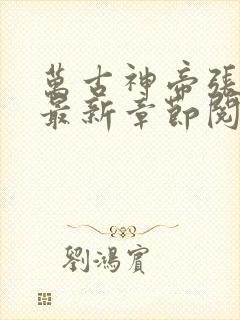 萬古神帝張
最新章節閱
劉鴻賓